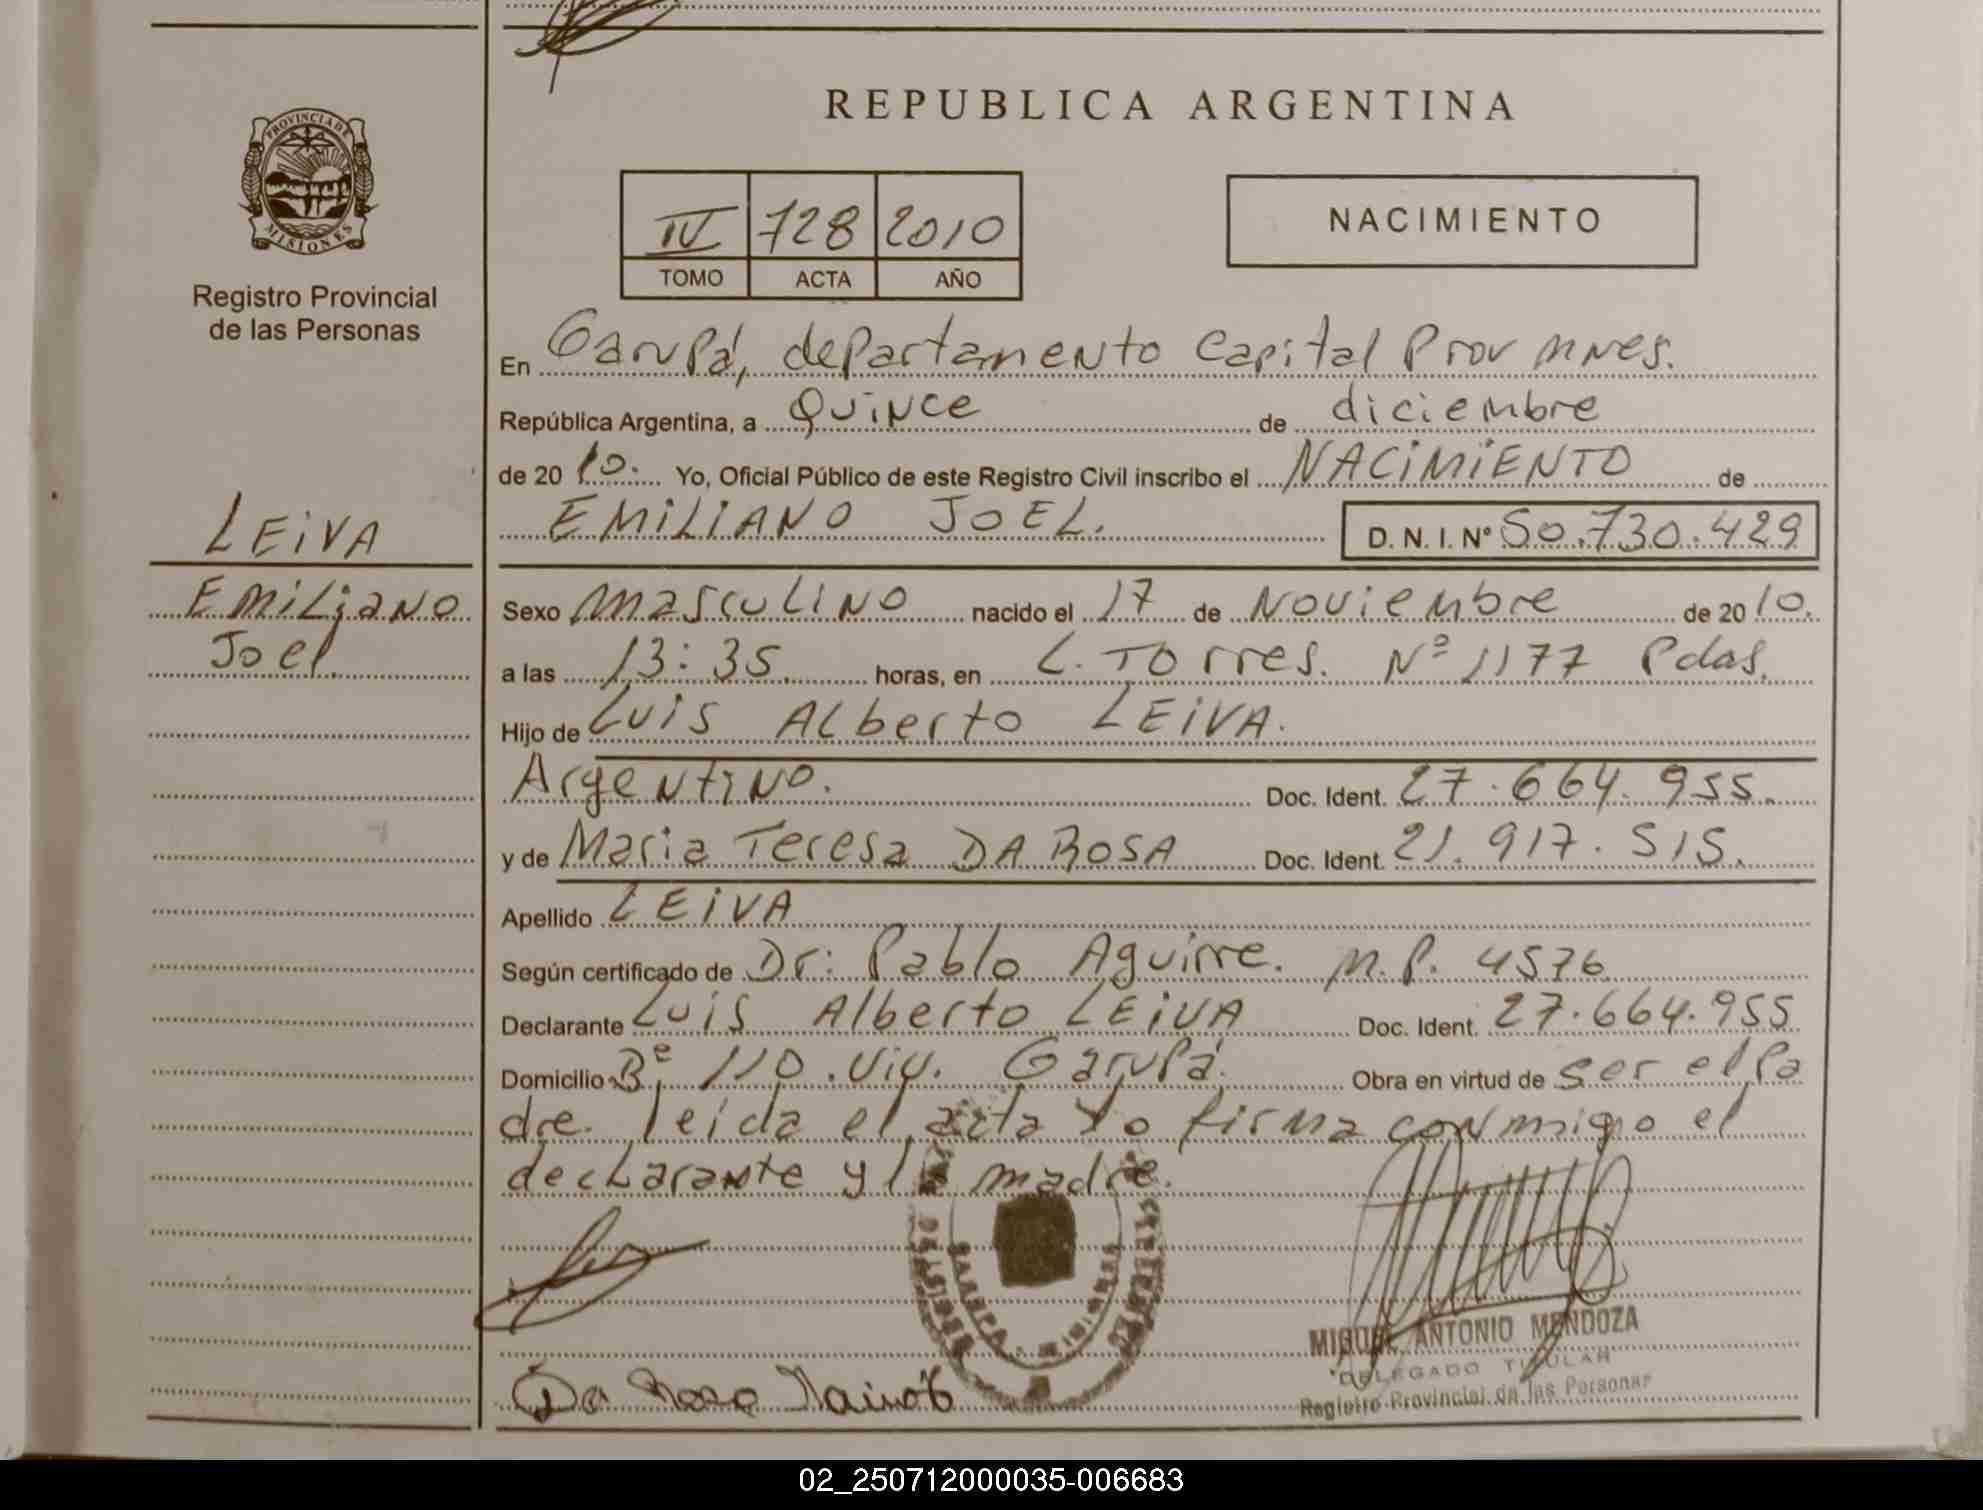 REPUBLICA ARGENTINA
PROVINCIA DE
MISIONES
Registro Provincial
de las Personas
IV 728 2010
TOMO ACTA AÑO
NACIMIENTO
En Garupá, departamento Capital Prov Mnes.
República Argentina, a Quince de diciembre
de 2010. Yo, Oficial Público de este Registro Civil inscribo el NACIMIENTO de
EMILIANO JOEL. D. N. I. Nº 50.730.429
LEIVA
Emiliano
Joel
Sexo masculino nacido el 17 de Noviembre de 2010.
a las 13:35. horas, en L. Torres. Nº 1177 Pdas.
Hijo de Luis Alberto LEIVA.
Argentino. Doc. Ident. 27.664.955.
y de Maria Teresa DA ROSA Doc. Ident. 21.917.515.
Apellido LEIVA
Según certificado de Dr: Pablo Aguirre. M.P. 4576
Declarante Luis Alberto LEIVA Doc. Ident. 27.664.955
Domicilio Bº 110 Viv. Garupá. Obra en virtud de ser el Pa
dre. leida el acta lo firma conmigo el
declarante y la madre.
Da Rosa
MIGUEL ANTONIO MENDOZA
DELEGADO TITULAR
Registro Provincial de las Personas
02_250712000035-006683